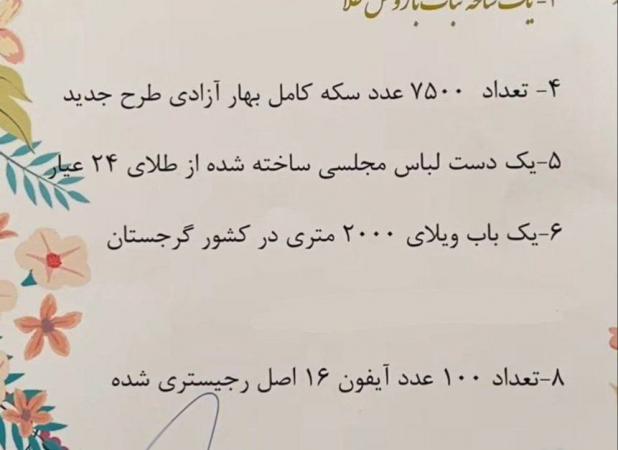 ۳- یک شاخه نبات با روکش طلا
۴- تعداد ۷۵۰۰ عدد سکه کامل بهار آزادی طرح جدید
۵-یک دست لباس مجلسی ساخته شده از طلای ۲۴ عیار
۶-یک باب ویلای ۲۰۰۰ متری در کشور گرجستان
۸-تعداد ۱۰۰ عدد آیفون ۱۶ اصل رجیستری شده